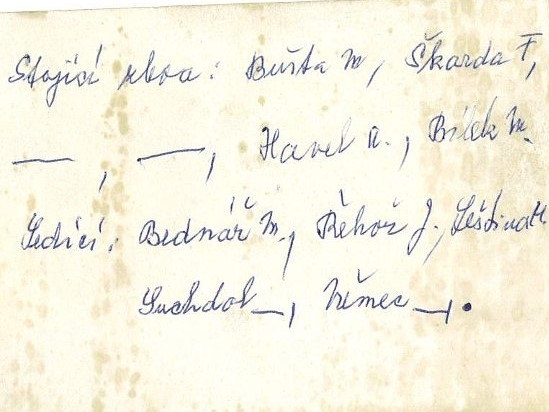 Stojící zleva: Bušta M, Škarda F,
—, —, Havel R., Bílek M.
Sedící: Bednář M., Řehoř J., Leština H.
Suchdol —, Němec —.